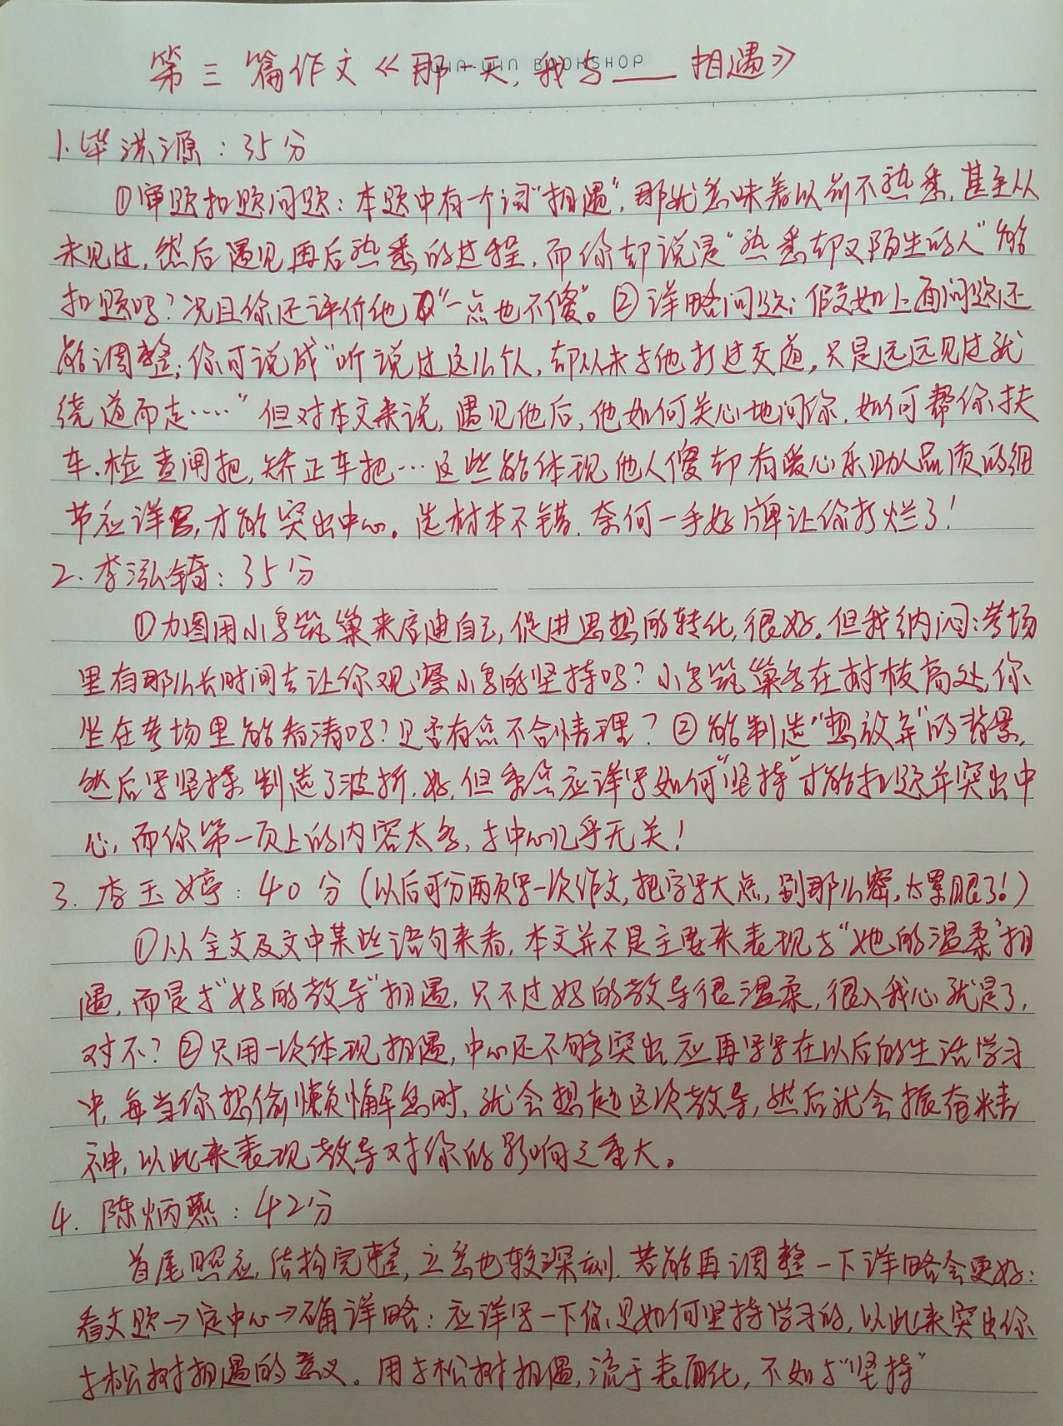 第三篇作文《那一天,我与___相遇》
1.毕洪源:35分
①审题扣题问题:本题中有一个词“相遇”,那就意味着以前不熟悉,甚至从
未见过,然后遇见再后熟悉的过程,而你却说是“熟悉却又陌生的人”能
扣题吗?况且你还评价他“一点也不傻”。②详略问题:假如上面问题还
能调整,你可说成“听说过这么个人,却从未与他打过交道,只是远远见过就
绕道而走……”但对本文来说,遇见他后,他如何关心地问你,如何帮你扶
车、检查闸把,矫正车把…这些能体现他人傻却有爱心乐助人品质的细
节应详写,才能突出中心。选材本不错,奈何一手好牌让你打烂了!
2.李泓锜:35分
①力图用小鸟筑巢来启迪自己,促进思想的转化,很好。但我纳闷:考场
里有那么长时间去让你观察小鸟的坚持吗?小鸟筑巢多在树枝高处,你
坐在考场里能看清吗?是否有点不合情理?②能制造“想放弃”的背景,
然后写坚持,制造了波折,好,但重点应详写如何“坚持”才能扣题并突出中
心,而你第一页上的内容太多,与中心几乎无关!
3.李玉婷:40分(以后可分两页写一次作文,把字写大点,别那么密,太累眼了!)
①从全文及文中某些语句来看,本文并不是主要来表现与“她的温柔”相
遇,而是与“妈的教导”相遇,只不过妈的教导很温柔,很入我心就是了,
对不?②只用一次体现相遇,中心还不够突出,应再写写在以后的生活学习
中,每当你想偷懒懈怠时,就会想起这次教导,然后就会振奋精
神,以此来表现教导对你的影响之重大。
4.陈炳燕:42分
首尾照应,结构完整,立意也较深刻,若能再调整一下详略会更好:
看文题→定中心→确详略:应详写一下你是如何坚持学习的,以此来突出你
与松树相遇的意义。用与松树相遇,流于表面化,不如与“坚持”